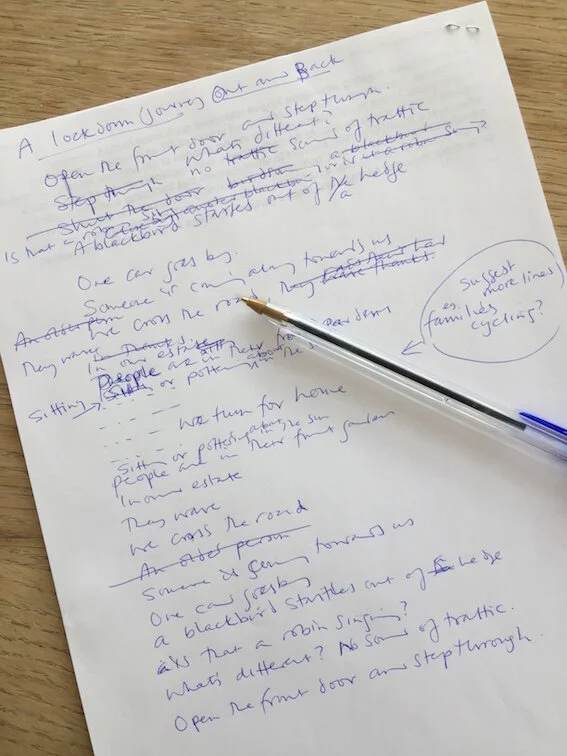 A lockdown journey Out and Back
Open the front door and step through.
Step through What's different?
no traffic sound of traffic
Shut the door a blackbird
Is that a robin singing
A blackbird startles out of the hedge
a
One car goes by.
Someone is coming along towards us
An older person
We cross the road They
They wave
In our estate
People are in their front gardens
Sitting or pottering about in the
suggest
more lines
eg. families
cycling?
we turn for home
Sitting or pottering about in the sun
people are in their front gardens
In our estate
They wave
We cross the road
An older person
Someone is coming towards us
One car goes by
a blackbird startles out of hedge
is that a robin singing?
What's different? No sound of traffic.
Open the front door and step through.